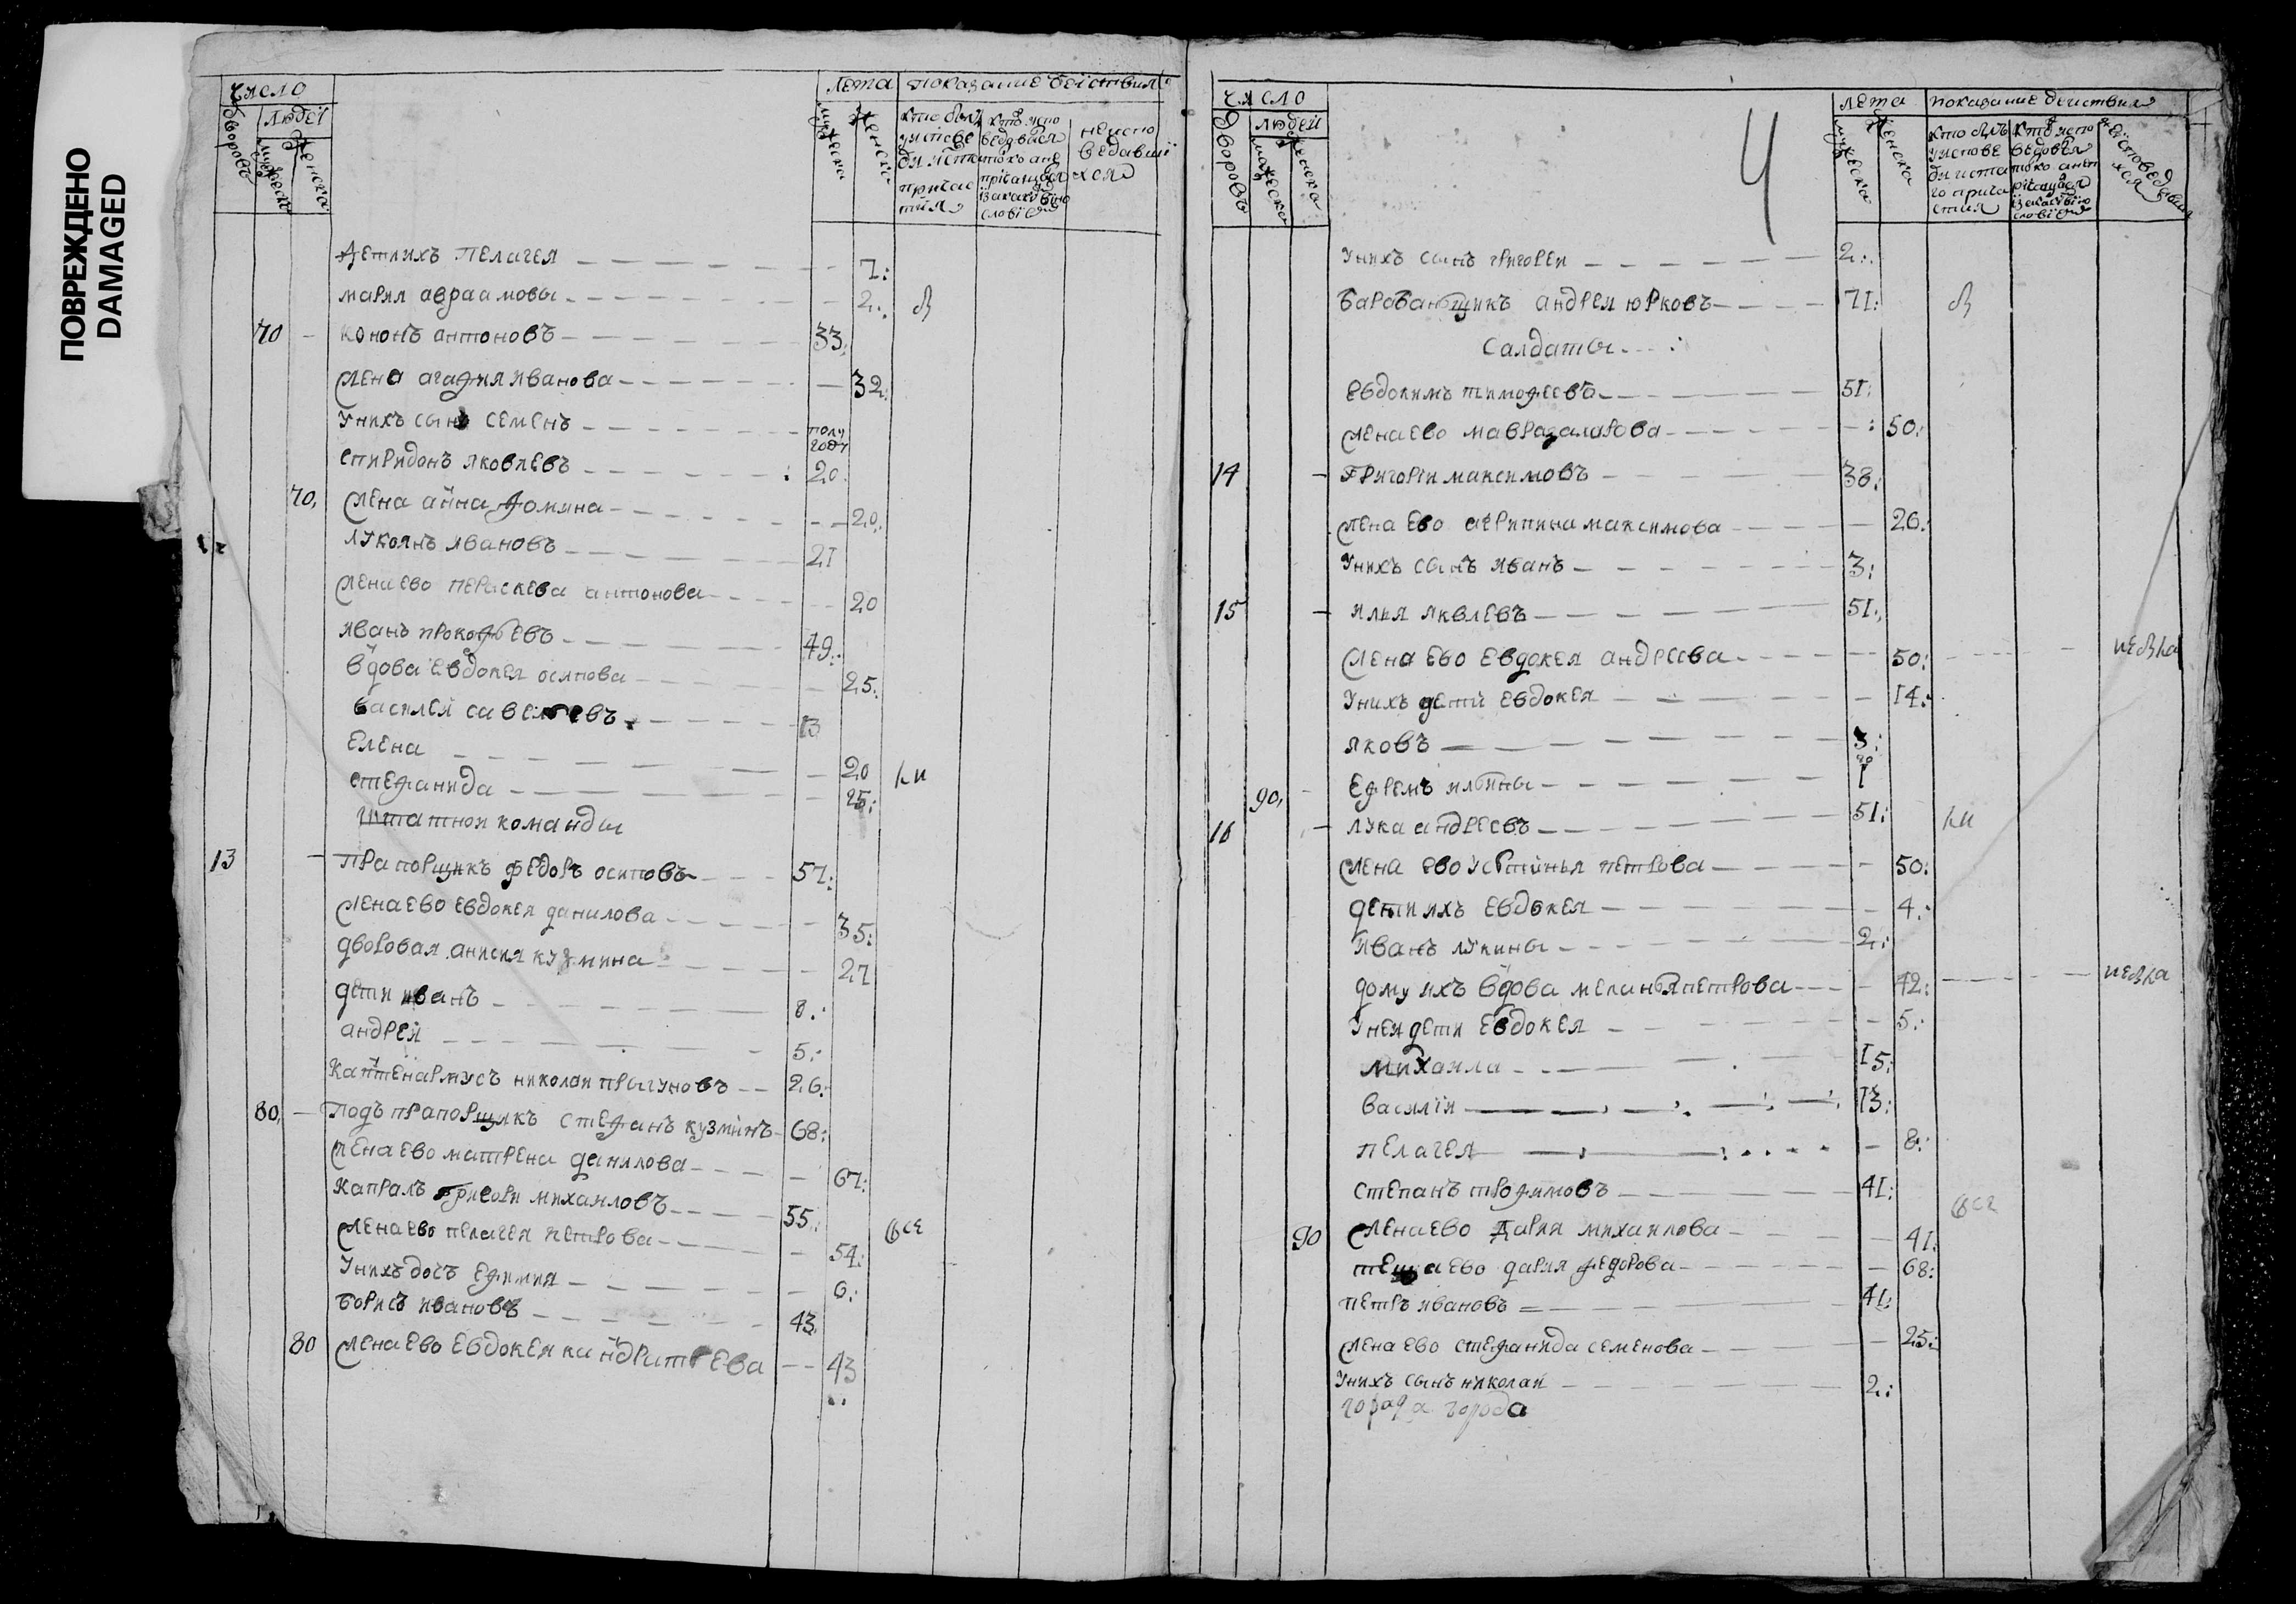 ПОВРЕЖДЕНО
DAMAGED
число
дворовъ
людей
мужеска
женска
лета
мужеска
женска
показание действия
кто былъ у исповеди и свята причастия
детиихъ пелагея 7:
мария авраамовы 2:
70 кононъ антоновъ 33:
жена агафия иванова 32:
унихъ сынъ семенъ полу году
спиридонъ яковлевъ 20:
70, жена анна фомина 20:
лукоянъ ивановъ 21
женаево пераскева антонова 20
иванъ прокофьевъ 49:
вдова евдокея осипова 25:
василей савельевъ 13
елена 20
стефанида 25:
штатнои команды
13 прапорщикъ федоръ осиповъ 57:
женаево евдокея данилова 35:
дворовая анисия кузмина 27
дети иванъ 8:
андрей 5:
каптенармусъ николаи прыгуновъ 26:
80, подъпрапорщикъ стефанъ кузминъ 68:
женаево матрена данилова 67:
капралъ григори михаиловъ 55:
женаево пелагея петрова 54: все
унихъ дочь ефимия 6:
борисъ ивановъ 43
80 женаево евдокея кандратьева 43
4
число
дворовъ
людей
мужеска
женска
лета
мужеска
женска
показание действия
унихъ сынъ григореи 2:
барабанщикъ андреи юрковъ 71:
салдаты
евдокимъ тимофеевъ 51:
женаево мавра 50:
14 григорiи максимовъ 38:
жена ево агрипина максимова 26:
унихъ сынъ иванъ 3:
15 илия яквлевъ 51:
жена ево евдокея андреева 50:
унихъ дети евдокея 14:
яковъ 3:
90, ефремъ ильины 1
16 лука андреевъ 51:
жена ево устинья петрова 50:
дети ихъ евдокея 4:
иванъ лукины 2:
дому ихъ вдова меланья петрова 42:
унеи дети евдокея 5:
михаила 15:
василiи 13:
пелагея 8:
степанъ трофимовъ 41:
все
90 женаево дария михаилова 41:
теща ево дария федорова 68:
петръ ивановъ 41:
жена ево стефанида семенова 25:
унихъ сынъ николаи 2:
города города